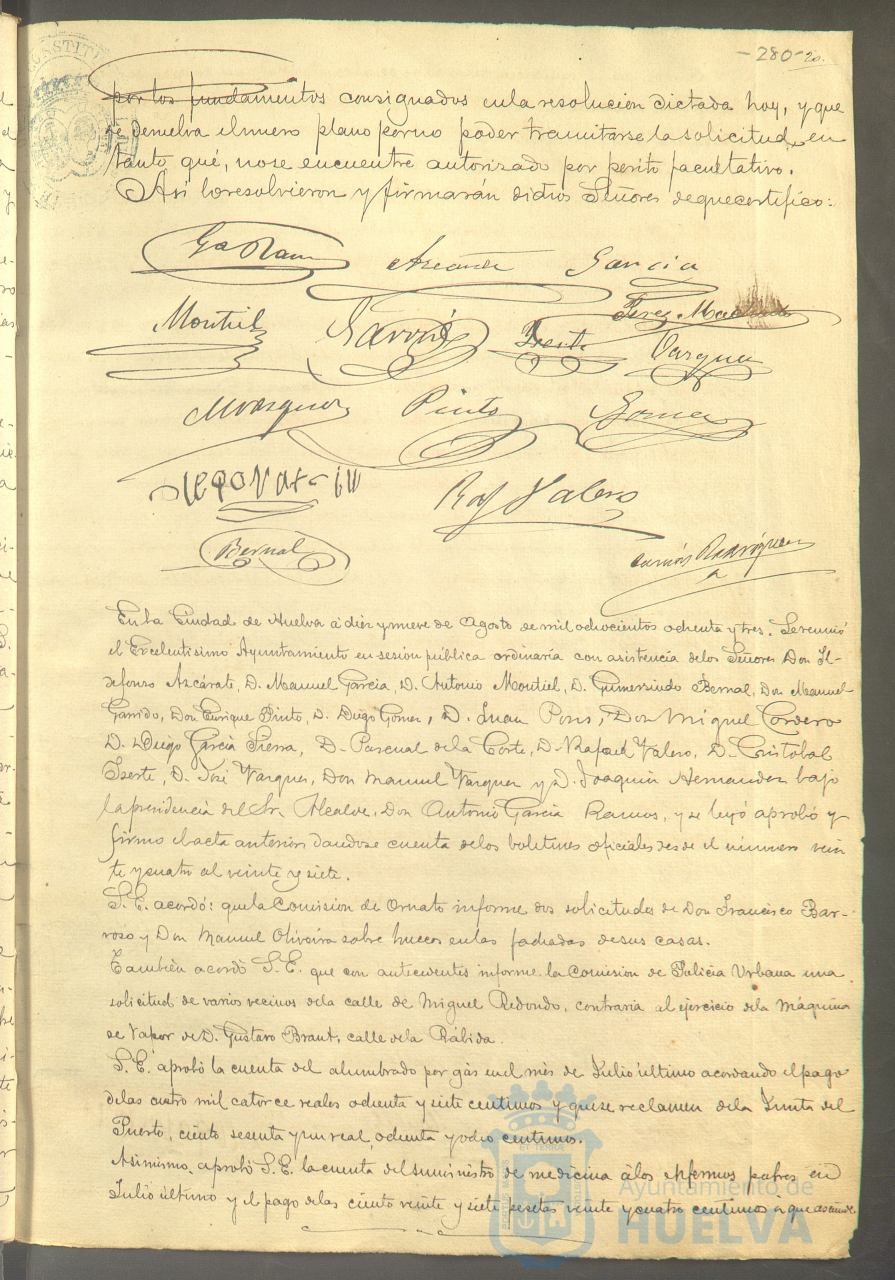 -280- 20.
por los fundamentos consignados en la resolución dictada hoy, y que
se devuelva el nuevo plano por no poder tramitarse la solicitud, en
tanto qué, no se encuentre autorizado por perito facultativo.
Asi lo resolvieron y firmarán dichos Señores de que certifico:
Ga Ram Azcárate Garcia
Perez Machado
Montiel Garrido Iserte Vargues
M Vazquez Pinto Gomez
Raf Valero
Bernal Rodriguez
En la Ciudad de Huelva á diez y nueve de Agosto de mil ochocientos ochenta y tres. Se reunió
el Excelentisimo Ayuntamiento en sesión pública ordinaria con asistencia de los Señores Don Il-
defonso Azcárate, D. Manuel Garcia, D. Antonio Montiel, D. Gumersindo Bernal, Don Manuel
Garrido, Don Enrique Pinto, D. Diego Gomez, D. Juan Pons, Don Miguel Cordero
D. Diego Garcia Sierra, D. Pascual de la Corte, D. Rafael Valero, D. Cristobal
Iserte, D. José Vargues, Don Manuel Vazquez y D. Joaquin Hernandez bajo
la presidencia del Sr. Alcalde, Don Antonio Garcia Ramos, y se leyó aprobó y
firmo el acta anterior dandose cuenta de los boletines oficiales desde el número vein
te y cuatro al veinte y siete.
S. E. acordó: que la Comision de Ornato informe dos solicitudes de Don Francisco Bar-
roso y Don Manuel Oliveira sobre huecos en las fachadas de sus casas.
Tambien acordó S. E. que con antecedentes informe la Comision de Policia Urbana una
solicitud de varios vecinos de la calle de Miguel Redondo, contraria al ejercicio de la máquina
de Vapor de D. Gustavo Braut, calle de la Rábida.
S. E. aprobó la cuenta del alumbrado por gas en el mes de Julio ultimo acordando el pago
de las cuatro mil catorce reales ochenta y siete centimos y que se reclamen de la Junta del
Puerto, ciento sesenta y un real, ochenta y ocho centimos.
Asimismo aprobó S. E. la cuenta del suministro de medicina á los enfermos pobres en
Julio último y el pago de las ciento veinte y siete pesetas veinte y cuatro centimos á que asciende.
Ayuntamiento de
HUELVA